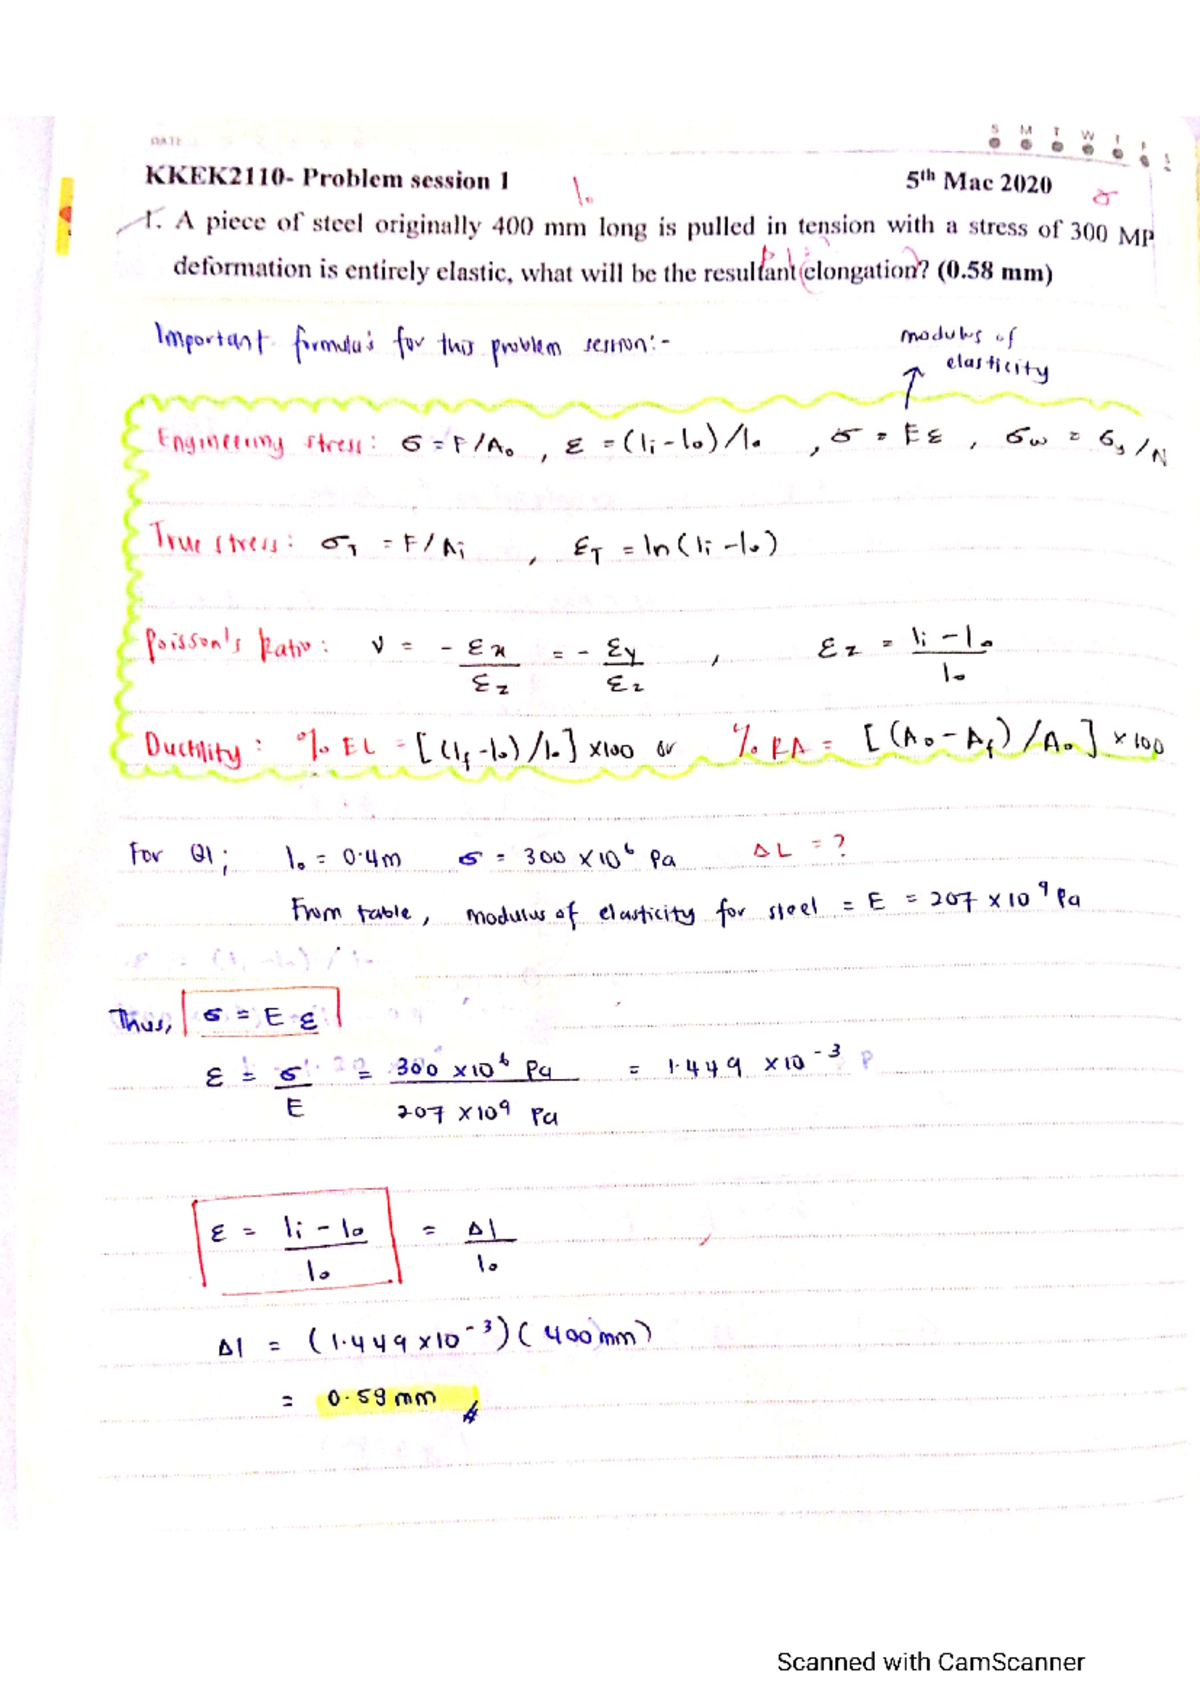 DATE
S M T W T F S
KKEK2110- Problem session 1
5th Mac 2020
lo
σ
1. A piece of steel originally 400 mm long is pulled in tension with a stress of 300 MP
deformation is entirely elastic, what will be the resultant elongation? (0.58 mm)
Important formula's for this problem session:-
modulus of elasticity
Engineering stress: σ = F/Ao , ε = (li - lo)/lo , σ = Eε , σw = σy/N
True stress: σT = F/Ai , εT = ln(li - lo)
Poisson's Ratio: v = - εx/εz = - εy/εz , εz = li - lo / lo
Ductility: % EL = [(lf - lo)/lo] x100 or % RA = [(Ao - Af)/Ao] x 100
For Q1; lo = 0.4m σ = 300 x 10^6 Pa ΔL = ?
From table, modulus of elasticity for steel = E = 207 x 10^9 Pa
Thus, σ = E ε
ε = σ/E = 300 x10^6 Pa / 207 x10^9 Pa = 1.449 x10^-3
ε = li - lo / lo = Δl / lo
Δl = (1.449 x10^-3)(400mm)
= 0.59 mm #
Scanned with CamScanner